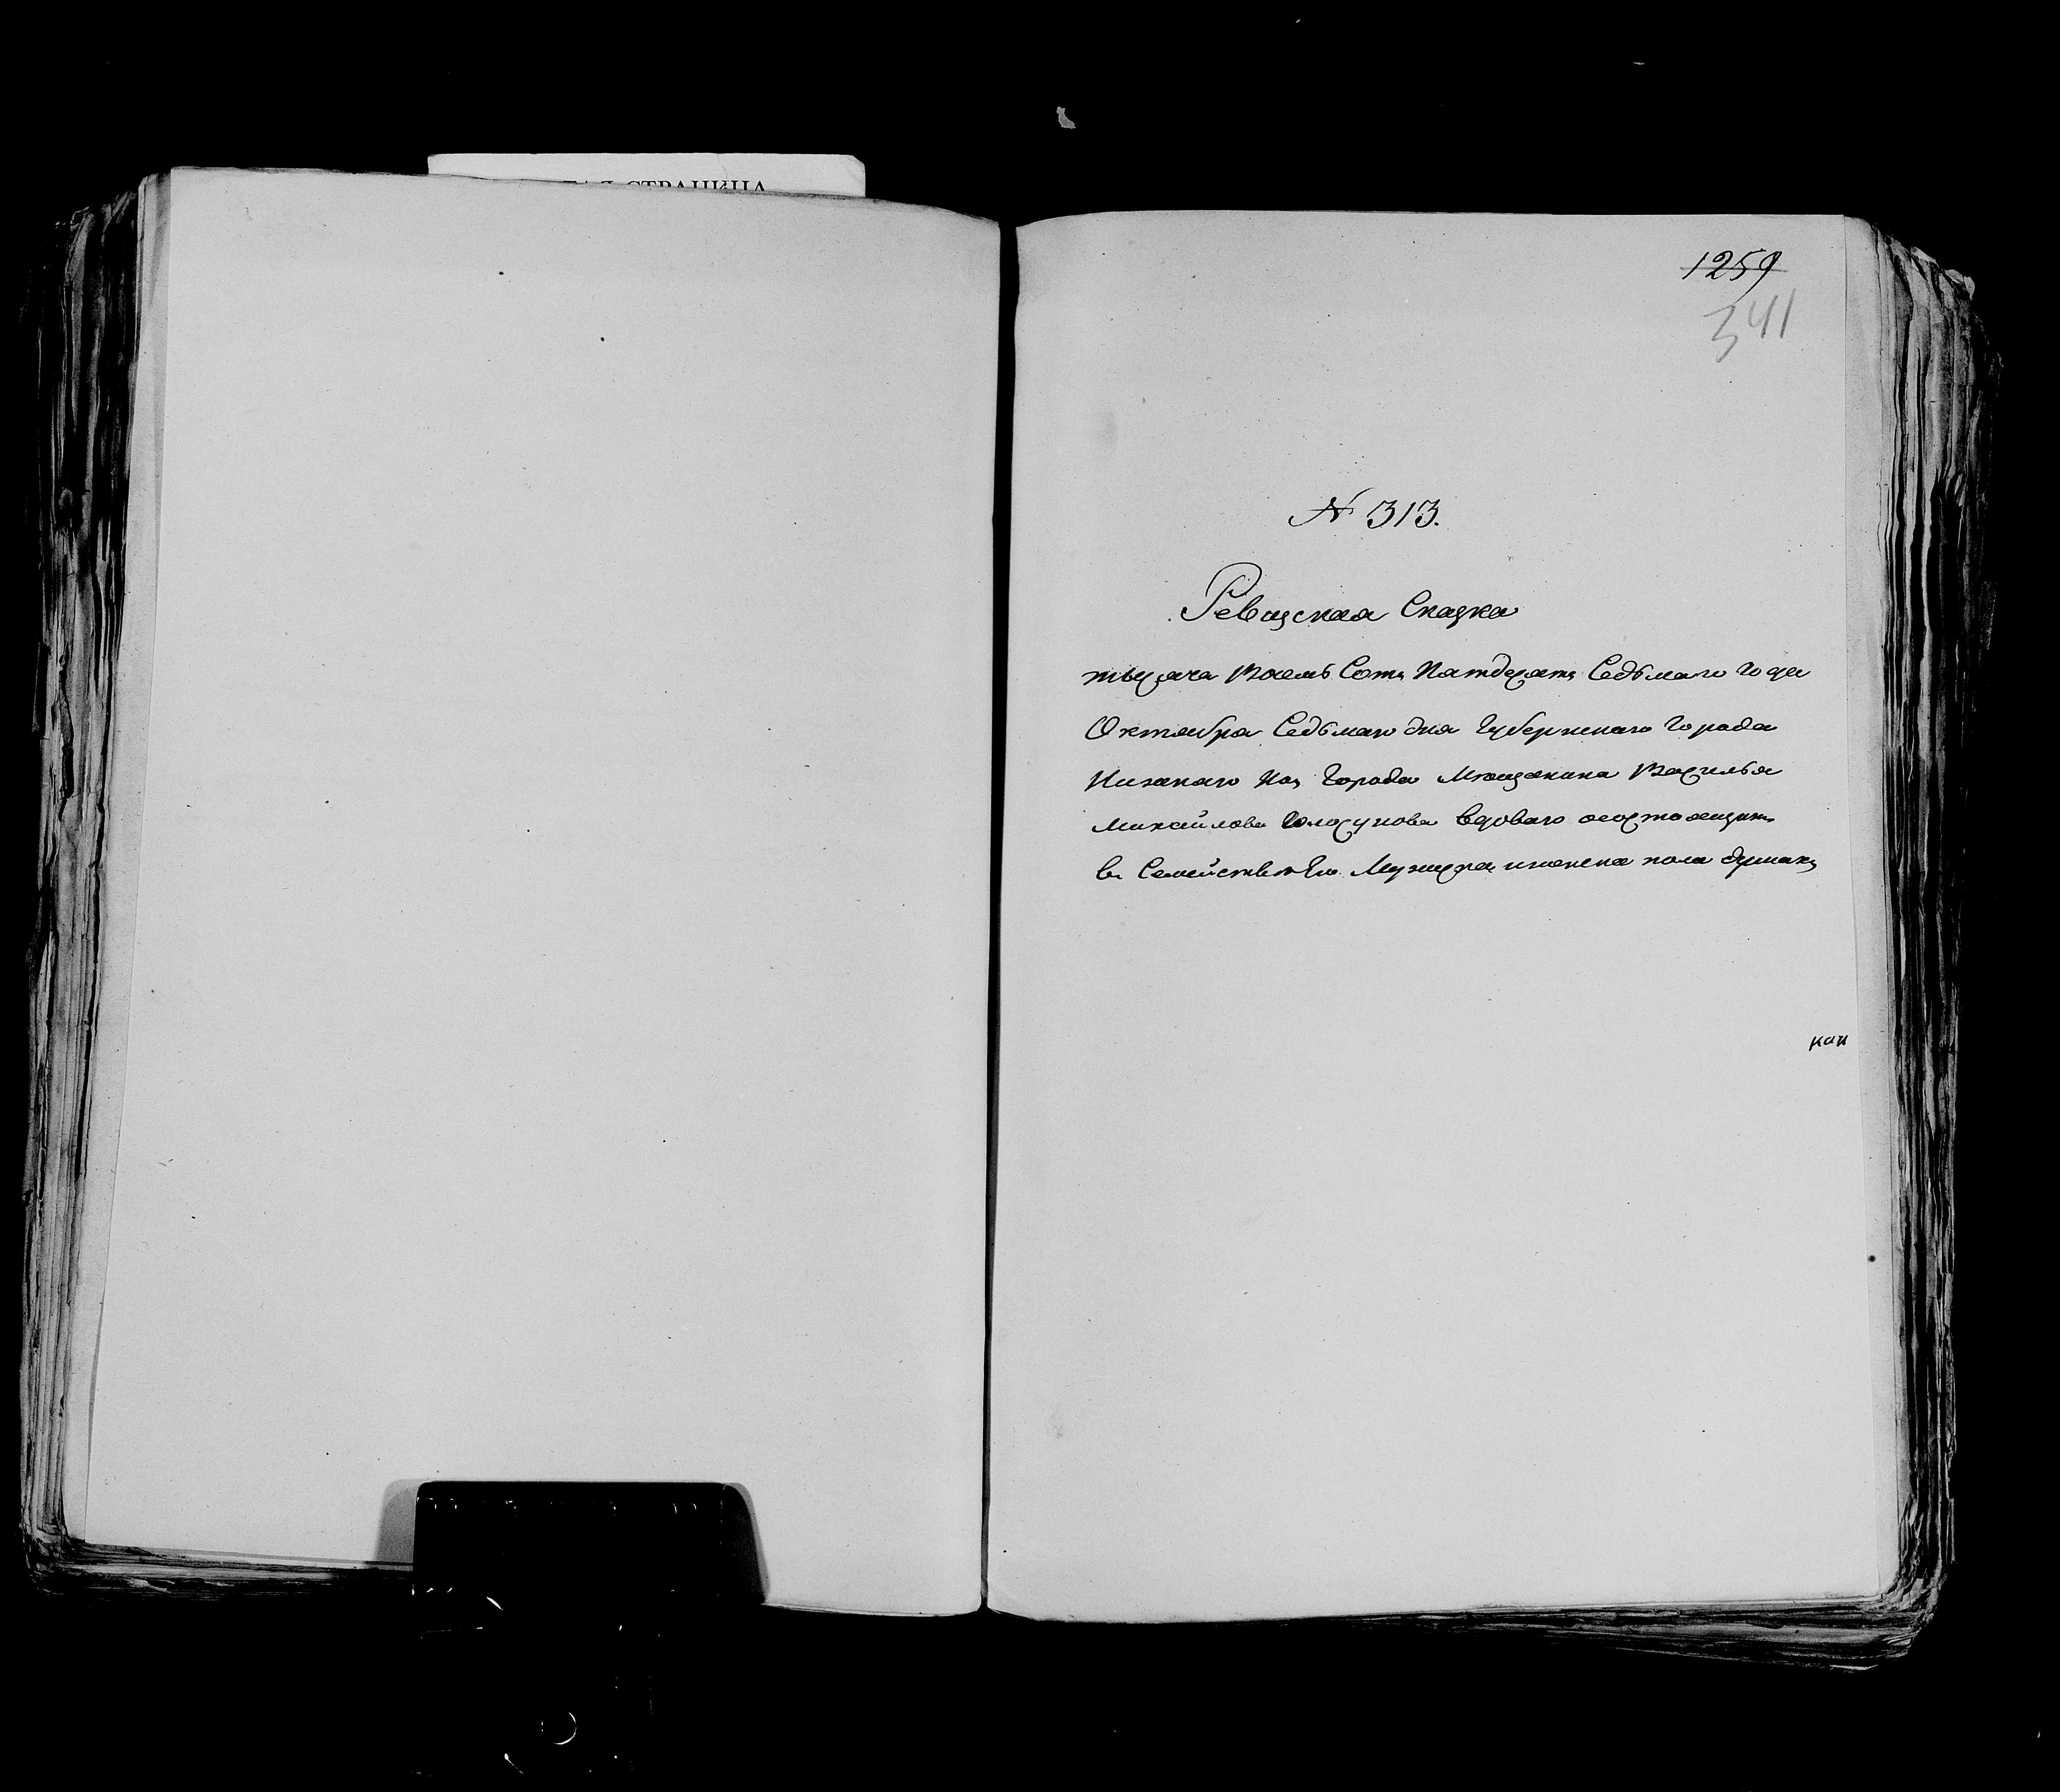 СТРАНИЦА
1259
341
N 313.
Ревизская Сказка
тысяча восемь Сотъ Пятдесятъ Седьмаго года
Октября Седьмаго дня Губернскаго Города
Нижняго Нов Города Мѣщанина Василья
Михайлова вдоваго
въ Семействѣ Его Мужеска и женска пола душахъ